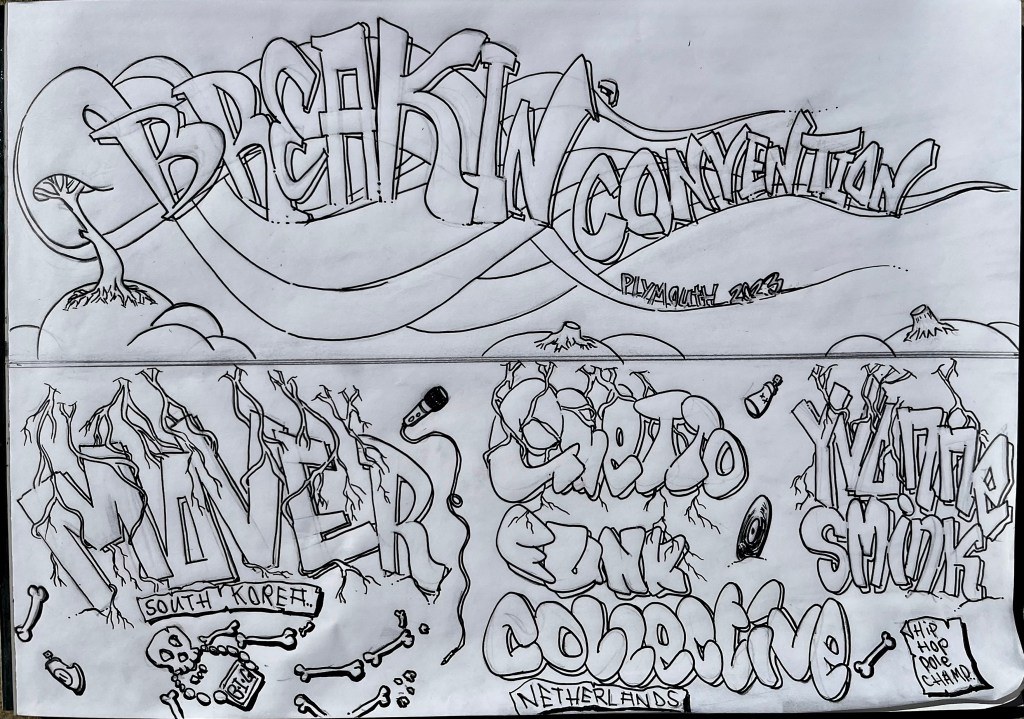 BREAKIN
CONVENTION
PLYMOUTH 2023
MOVER
SOUTH KOREA..
B.I.G
GHETTO
FUNK
COLLECTIVE
NETHERLANDS
YVONNE
SMINK
HIP
HOP
POLE
CHAMP.